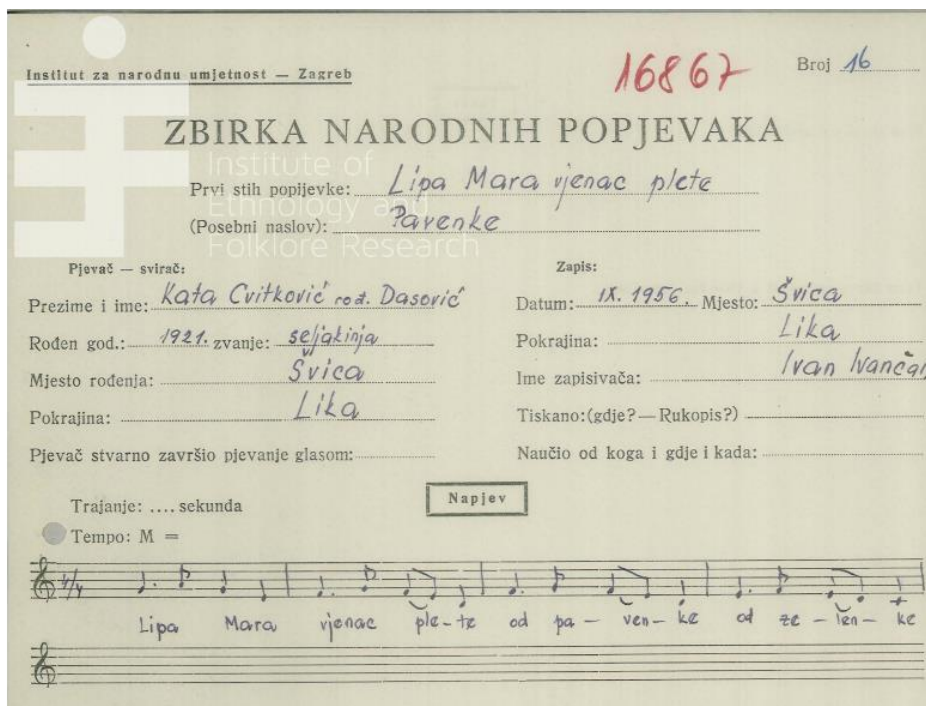 Institut za narodnu umjetnost — Zagreb
16867
Broj 16
ZBIRKA NARODNIH POPJEVAKA
Institute of
Ethnology and
Folklore Research
Prvi stih popijevke: Lipa Mara vjenac plete
(Posebni naslov): Pavenke
Pjevač — svirač:
Prezime i ime: Kata Cvitković rođ. Dasović
Rođen god.: 1921. zvanje: seljakinja
Mjesto rođenja: Švica
Pokrajina: Lika
Pjevač stvarno završio pjevanje glasom:
Zapis:
Datum: IX. 1956. Mjesto: Švica
Pokrajina: Lika
Ime zapisivača: Ivan Ivančan
Tiskano:(gdje?—Rukopis?)
Naučio od koga i gdje i kada:
Napjev
Trajanje: .... sekunda
Tempo: M =
4/4
Lipa Mara vjenac ple-te od pa-ven-ke od ze-len-ke